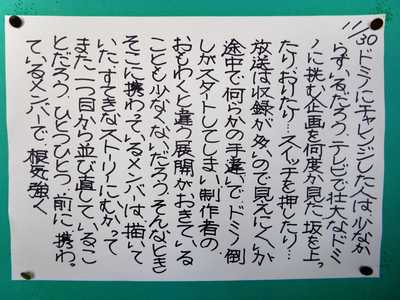 11/30 ドミノにチャレンジした人は少なか
らずいるだろう。テレビで壮大なドミ
ノに挑む企画を何度か見た。坂を上っ
たりおりたり…スイッチを押したり…
放送は収録が多いので見えにくいが
途中で何らかの手違いでドミノ倒
しがスタートしてしまい制作者の
おもわくと違う展開がおきている
ことも少なくないだろう。そんなとき
そこに携わっているメンバーは、描いて
いた、すてきなストーリーにむかって
また、一つ目から並び直しているこ
とだろう。ひとつひとつ、前に携わっ
ているメンバーで、根気強く